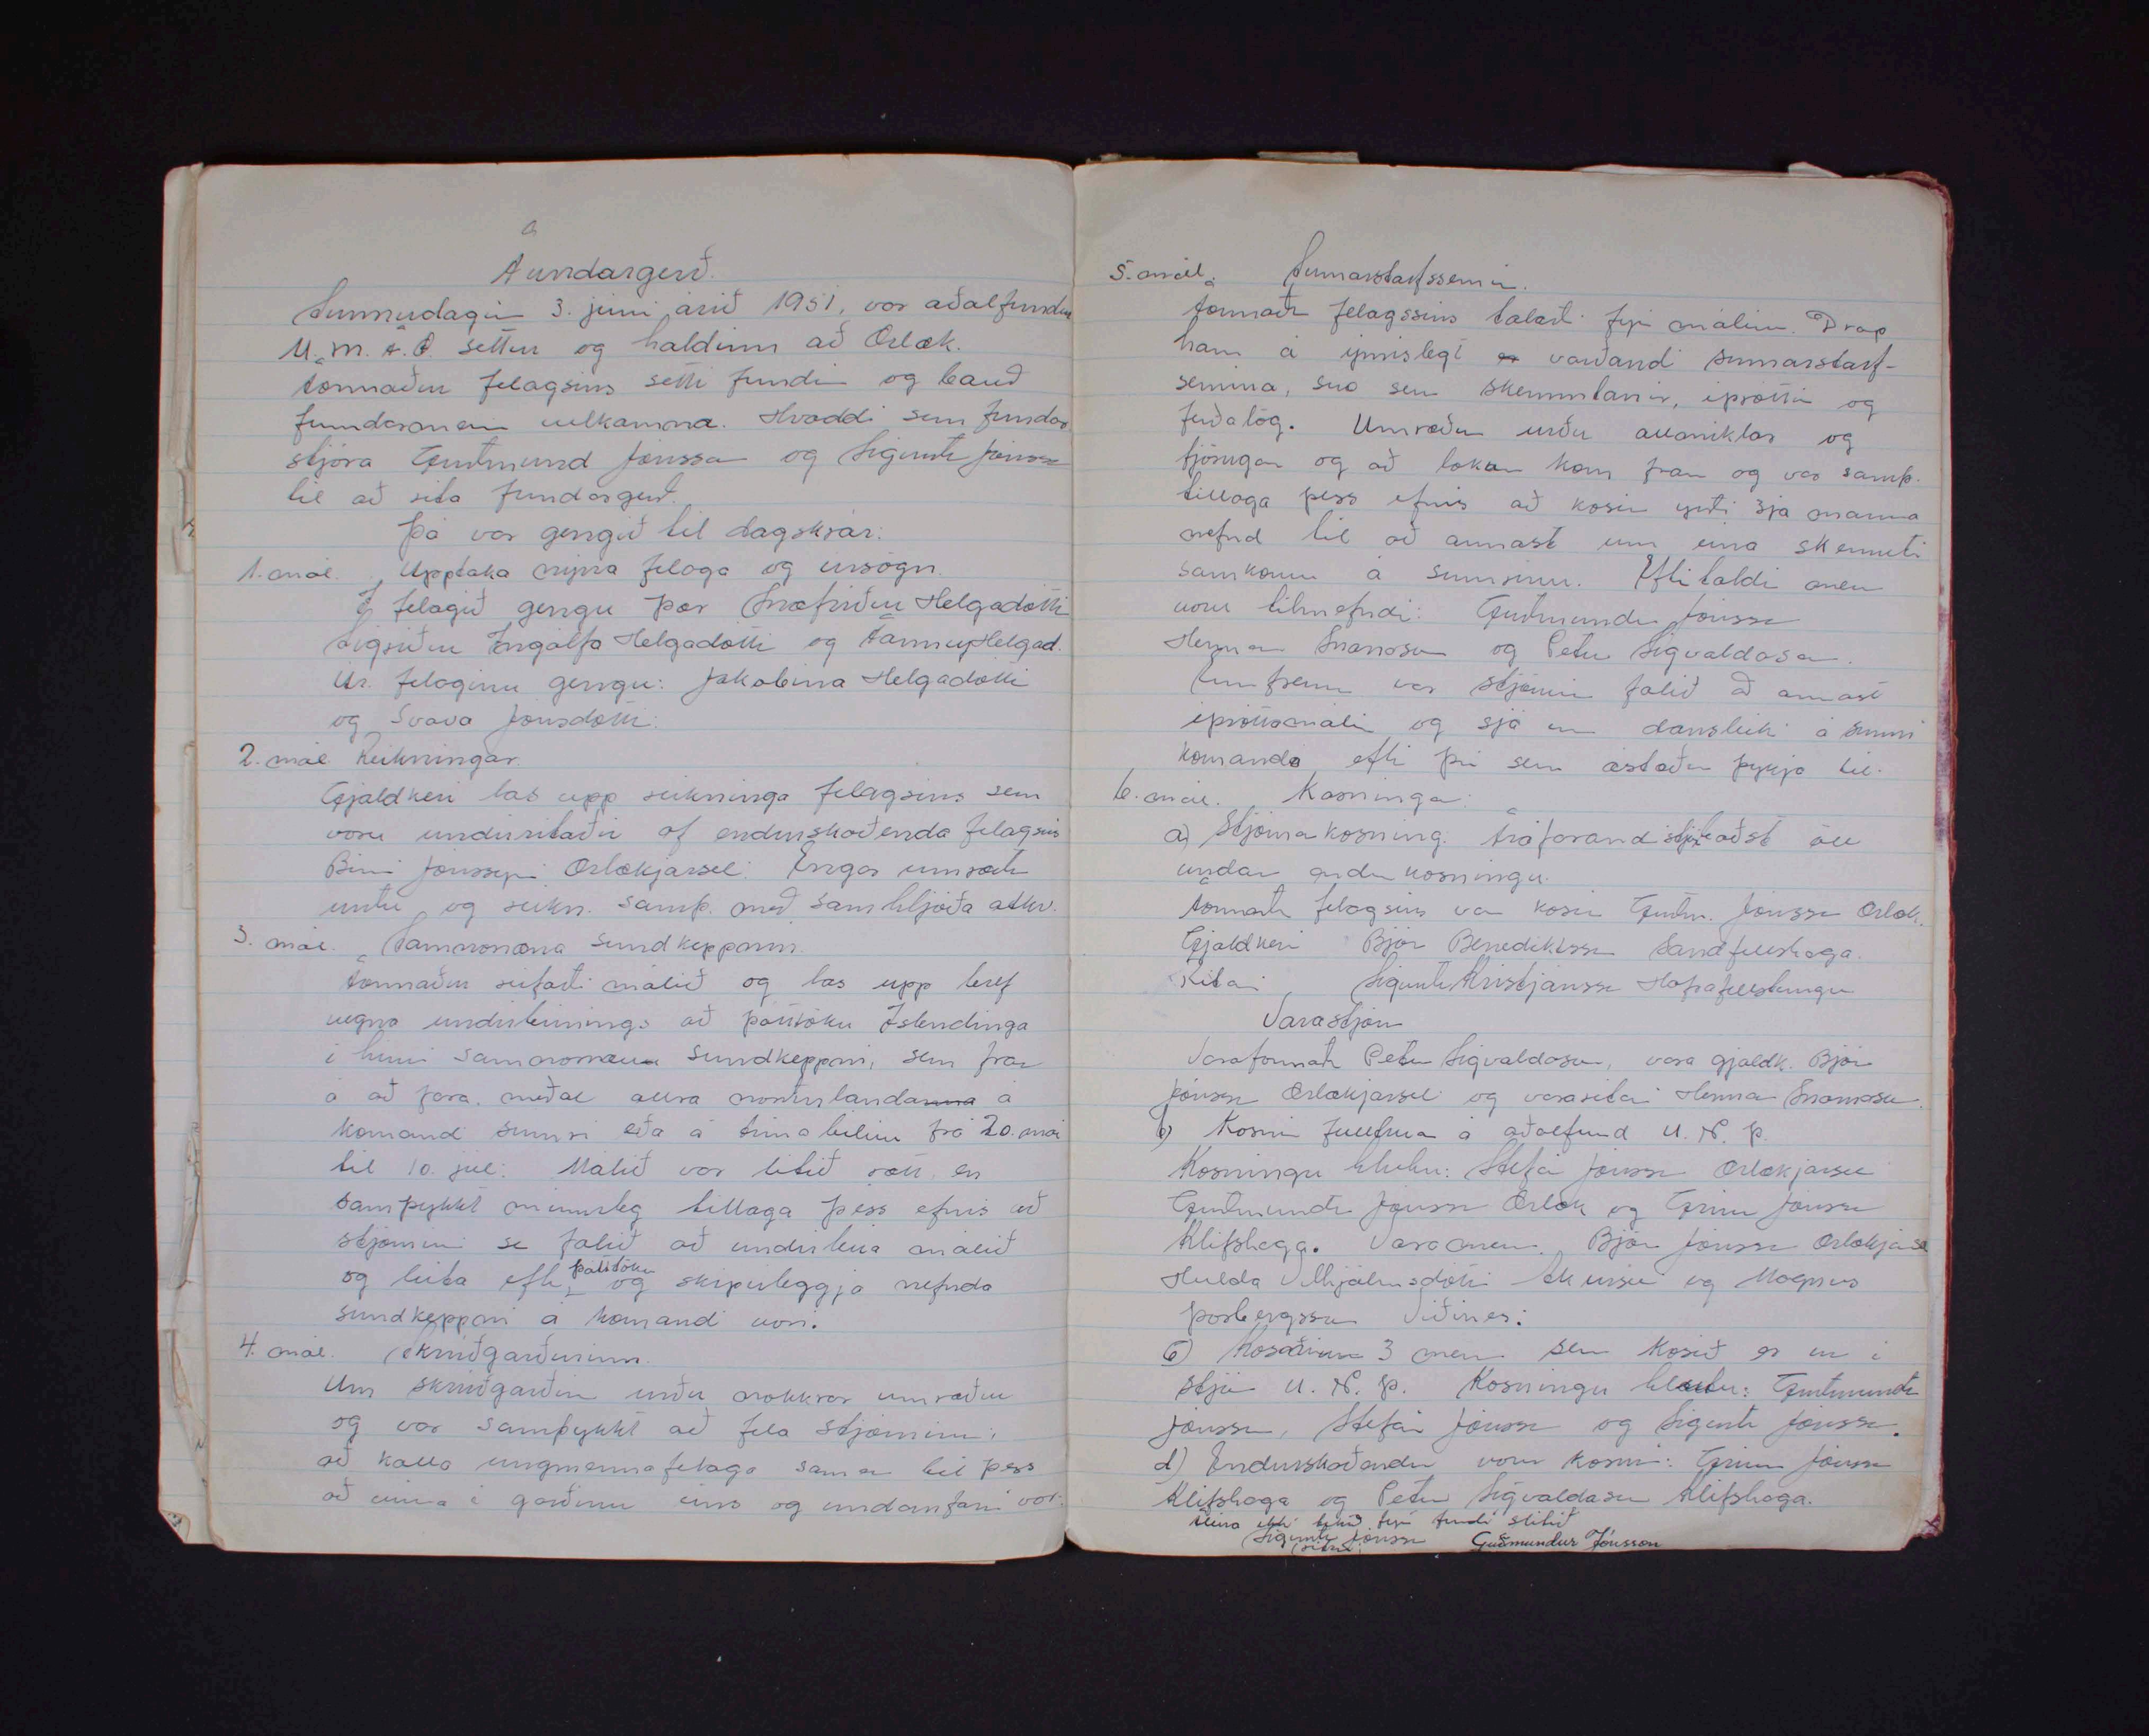 Fundargerð.
Sunnudagin 3. júni árið 1951, var aðalfundur
U.M.F.Ö. settur og haldinn að Ærlæk.
Formaður félagsins setti fundin og bauð
fundarmenn velkomna. Kvaddi sem fundar
stjóra Guðmund Jónsson og Sigurð Jónsson
til að rita fundargerð.
Þá var gengið til dagskrár:
1. mál. Upptaka nýrra félaga og úrsögn.
Í félagið gengu þær Snæfríður Helgadóttir
Sigríður Ingólfa Helgadóttir og Fanney Helgad.
Úr félaginu gengu: Jakobína Helgadóttir
og Svava Jónsdóttir.
2. mál Reikningar.
Gjaldkeri las upp reikninga félagsins sem
voru undirritaðir af endurskoðenda félagsins
Birni Jónssyni Ærlækjarseli. Engar umræður
urðu og reikn. samþ. með samhljóða atkv.
3. mál. Samnorræna sundkeppnin.
Formaður reifaði málið og las upp bréf
vegna undirbúnings að þáttöku Íslendinga
í hinni samnorrænu sundkeppni, sem fram
á að fara meðal allra norðurlandanna á
komandi sumri eða á tímabilinu frá 20. maí
til 10. júlí. Málið var lítið rætt en
samþykkt munnleg tillaga þess efnis að
stjórninni sé falið að undirbúa málið
og leita eftir þáttöku og skipuleggja nefnda
sundkeppni á komandi vori.
4. mál. Skrúðgarðurinn.
Um skrúðgarðin urðu nokkrar umræður
og var samþykkt að fela stjórninni
að kalla ungmennafélaga saman til þess
að vinna í garðinum eins og undanfarin vor.
5. mál. Sumarstarfssemin.
Formaður félagssins talaði fyrir málinu. Drap
hann á ýmislegt er varðandi sumarstarf-
semina, svo sem skemmtanir, íþróttir og
ferðalög. Umræður urðu allmiklar og
fjörugar og að lokum kom fram og var samþ.
tillaga þess efnis að kosin yrði 3ja manna
nefnd til að annast um eina skemmti
samkomu á sumrinu. Eftirtaldir menn
voru tilnefndir: Guðmundur Jónsson
Hermann Snanason og Pétur Sigvaldason.
Ennfremur var stjórninni falið að annast
íþróttamálin og sjá um dansleiki á sumri
komanda eftir því sem ástæður þykja til.
6. mál. Kosningar.
a) Stjórnakosning. Fráfarandi stjórn baðst öll
undan endurkosningu.
Formaður félagsins var kosin Guðm. Jónsson Ærlæk.
Gjaldkeri Björn Benediktsson Sandfellshaga.
Ritari Sigurður Kristjánsson Hafrafellstungu
Varastjórn
Varaformaður Pétur Sigvaldason, vara gjaldk. Björn
Jónsson Ærlækjarseli og vararitari Hermann Snanason.
b) Kosnir fulltrúar á aðalfund U.N.Þ.
Kosningu hlutu: Stefán Jónsson Ærlækjarseli
Guðmundur Jónsson Ærlæk og Grímur Jónsson
Klifshaga. Varamenn. Björn Jónsson Ærlækjarse
Hulda Vilhjálmsdóttir Akurseli og Magnús
Þorbergsson Víðinesi:
c) Kosnir 3 menn sem kosið er um í
stjórn U.N.Þ. Kosningu hlutu: Guðmundur
Jónsson, Stefán Jónsson og Sigurður Jónsson.
d) Endurskoðendur voru kosnir: Grímur Jónsson
Klifshaga og Pétur Sigvaldason Klifshaga.
Fleira ekki tekið fyrir fundi slitið
Sigurður Jónsson Guðmundur Jónsson
(ritari)